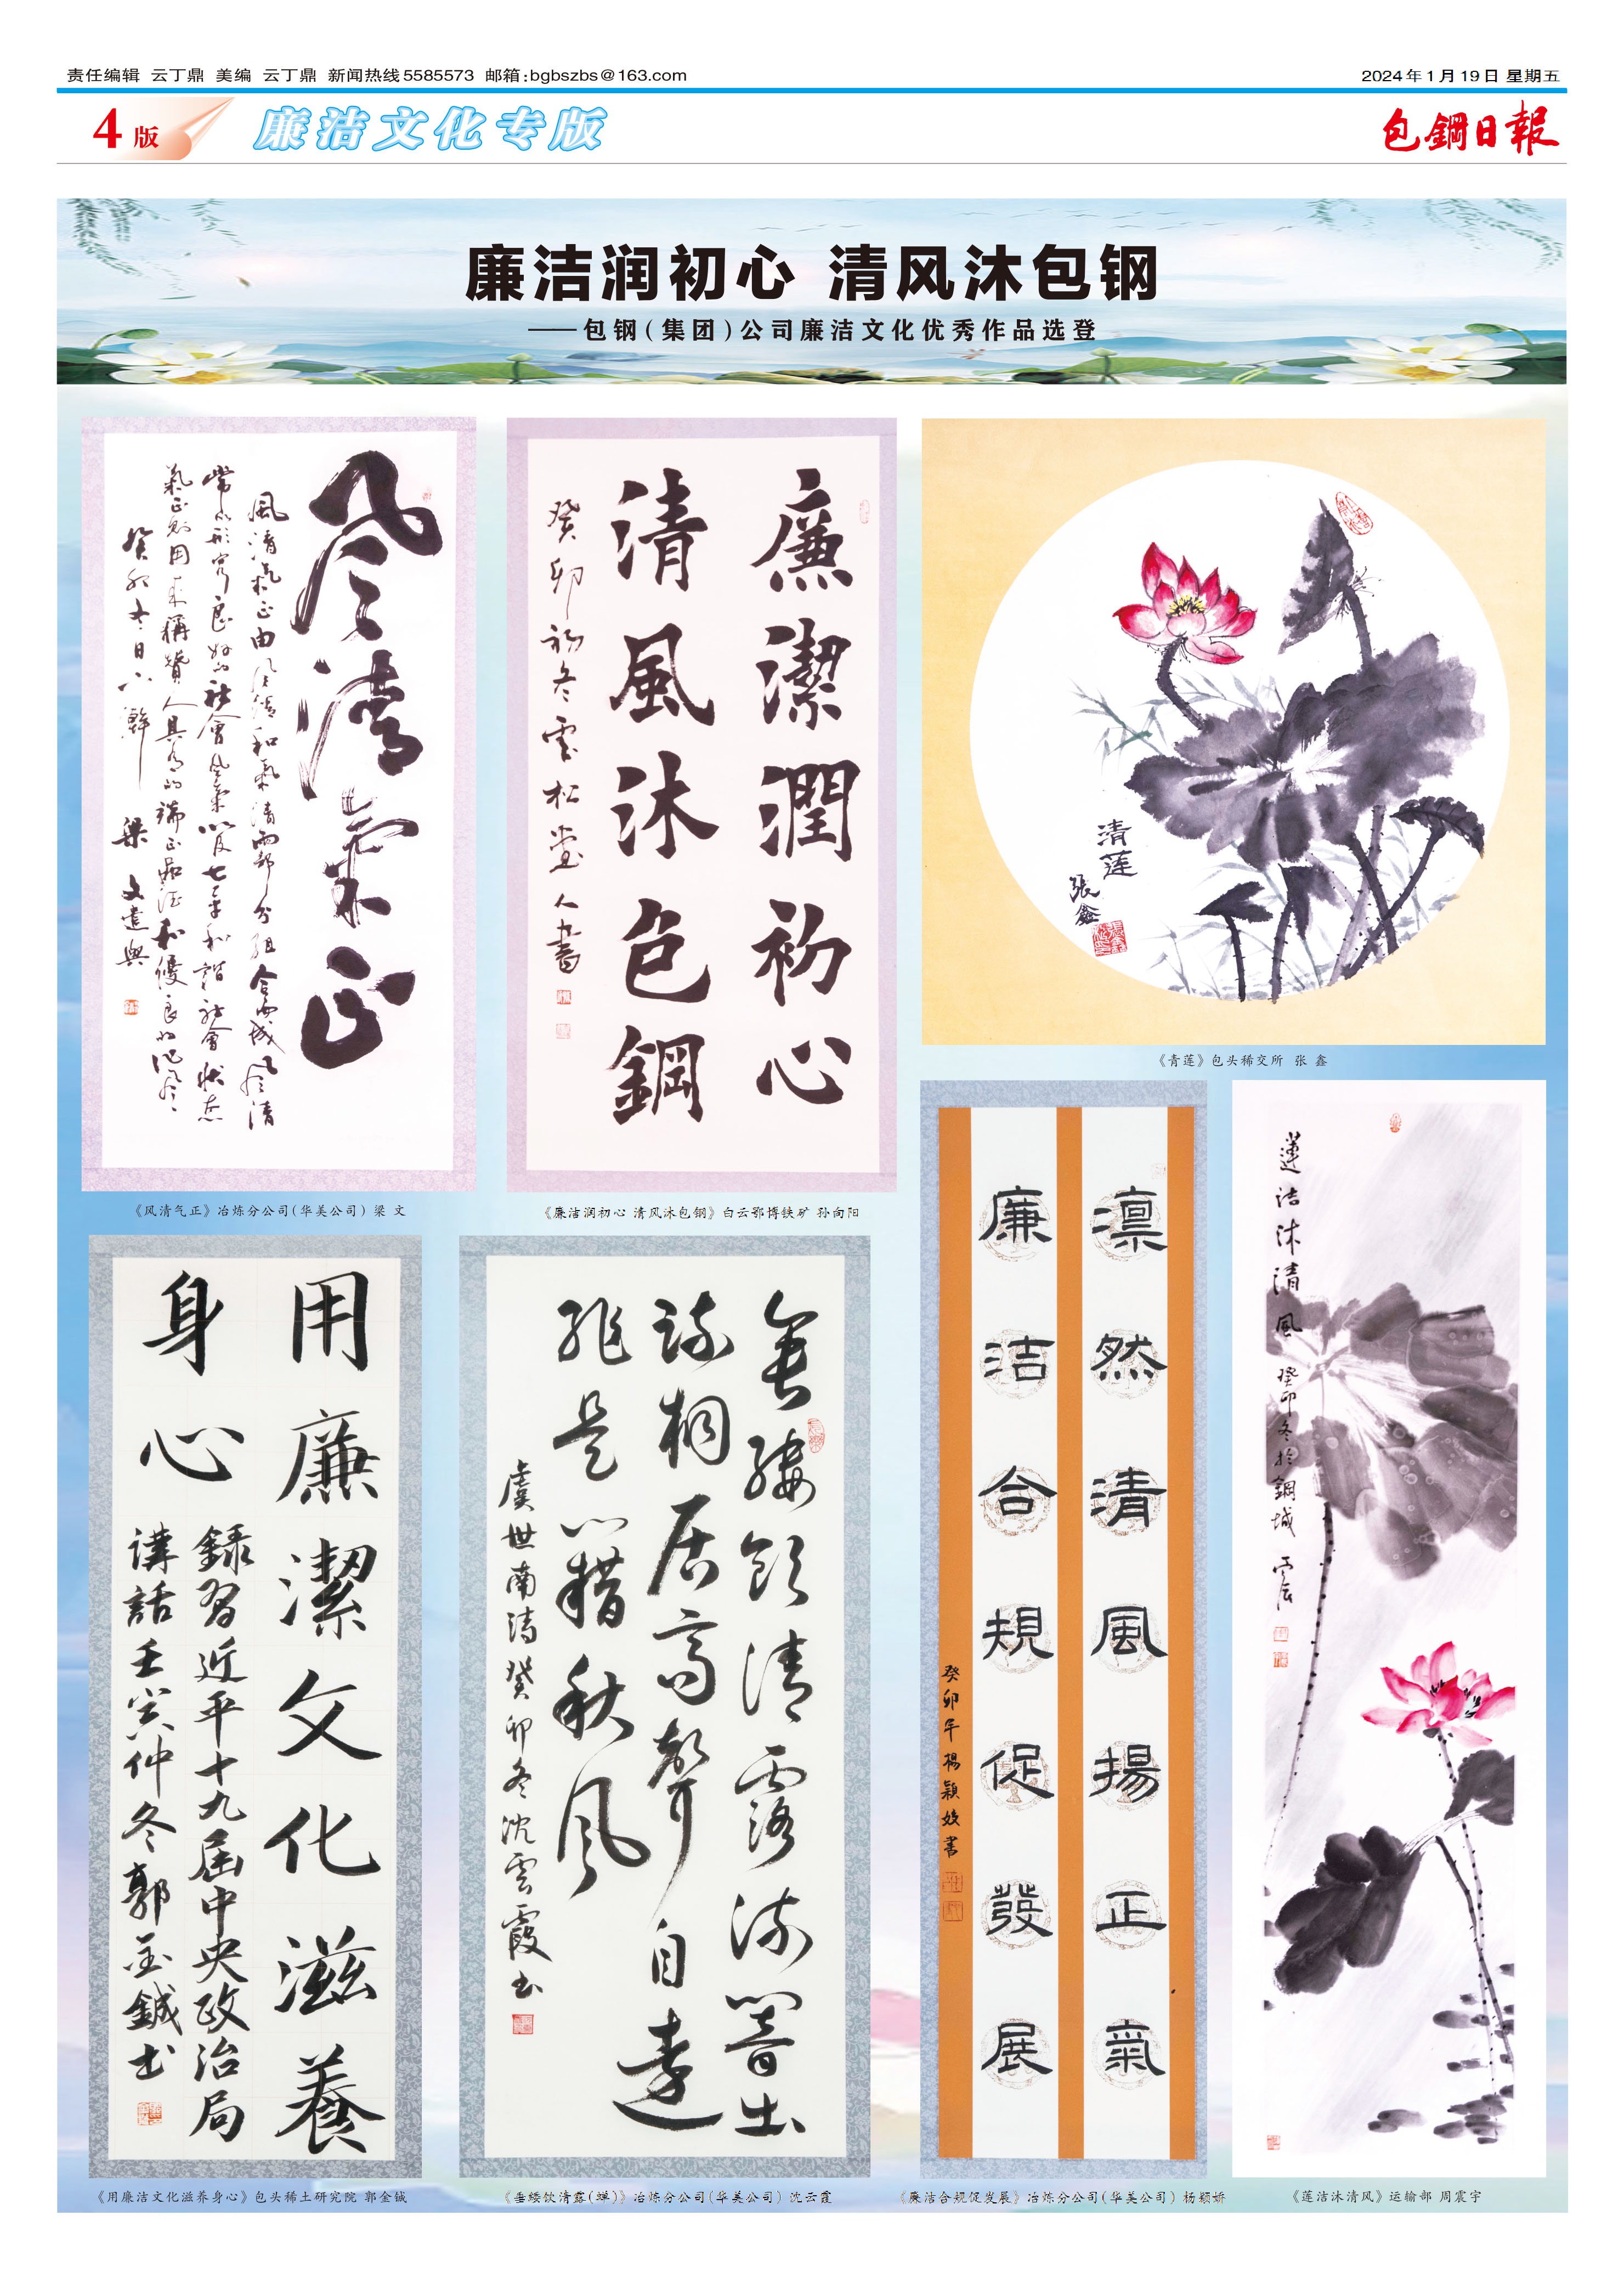 责任编辑 云丁鼎 美编 云丁鼎 新闻热线5585573 邮箱:bgbszbs@163.com
2024年1月19日 星期五
4版
廉洁文化专版
包鋼日報
廉洁润初心 清风沐包钢
——包钢(集团)公司廉洁文化优秀作品选登
风清氣正
癸卯冬日
梁文
《风清气正》冶炼分公司(华美公司) 梁 文
廉潔潤初心
清風沐包鋼
癸卯初冬雲松堂人書
《廉洁润初心 清风沐包钢》白云鄂博铁矿 孙向阳
清莲
張鑫
《青莲》包头稀交所 张 鑫
用廉潔文化滋養
身心
錄習近平十九届中央政治局
講話壬寅仲冬郭金鋮书
《用廉洁文化滋养身心》包头稀土研究院 郭金铖
垂緌飲清露流響出
疏桐居高聲自遠
非是藉秋风
虞世南詩癸卯冬沈雲霞书
《垂緌饮清露(蝉)》冶炼分公司(华美公司) 沈云霞
凛然清風揚正氣
廉洁合規促發展
癸卯年楊穎娇書
《廉洁合规促发展》冶炼分公司(华美公司) 杨颖娇
蓮洁沐清風
癸卯冬於鋼城
《莲洁沐清风》运输部 周震宇